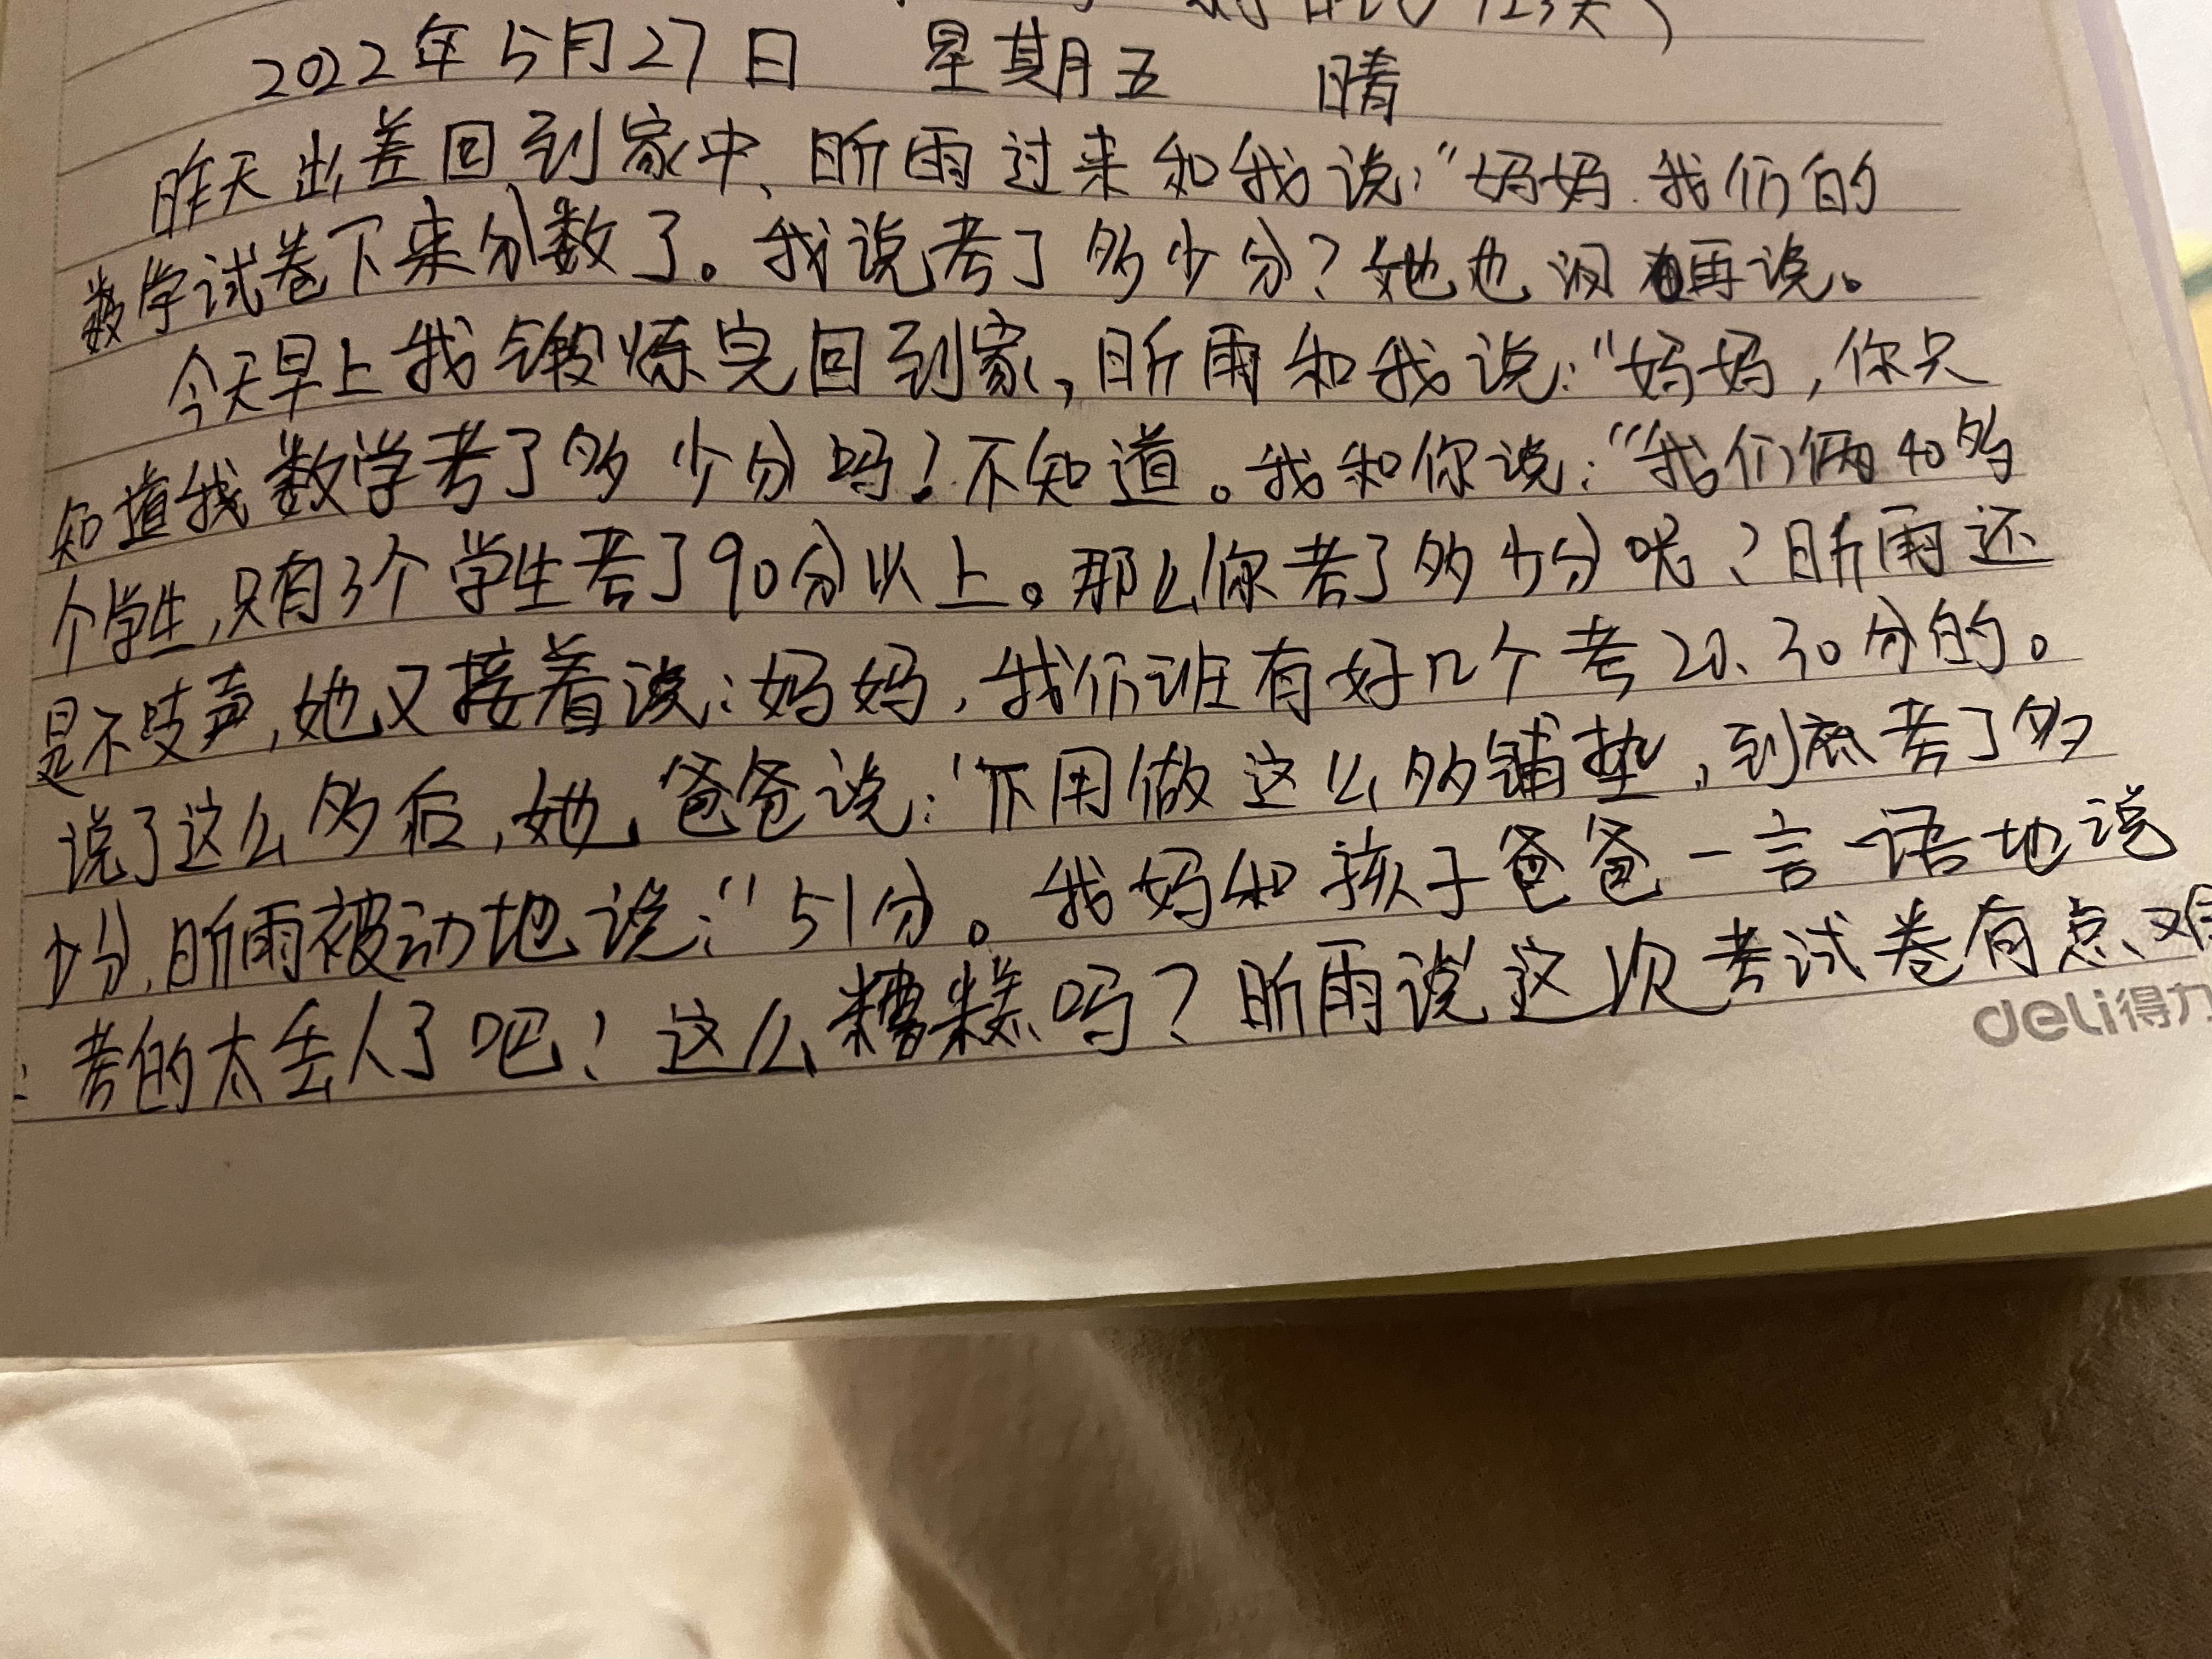 123天)
2022年5月27日 星期五 晴
昨天出差回到家中、昕雨过来和我说:"妈妈.我们的
数学试卷下来分数了。我说考了多少分?她也没再说。
今天早上我锻炼完回到家,昕雨和我说:"妈妈,你只
知道我数学考了多少分吗!不知道。我和你说:"我们俩40多
个学生,只有3个学生考了90分以上。那么你考了多少分呢?昕雨还
是不吱声,她又接着说:妈妈,我们班有好几个考20、30分的。
说了这么多后,她爸爸说:"不用做这么多铺垫,到底考了多
少分,昕雨被动地说:"51分。我妈和孩子爸爸一言一语地说
:考的太丢人了吧!这么糟糕吗?昕雨说这次考试卷有点难
deli得力